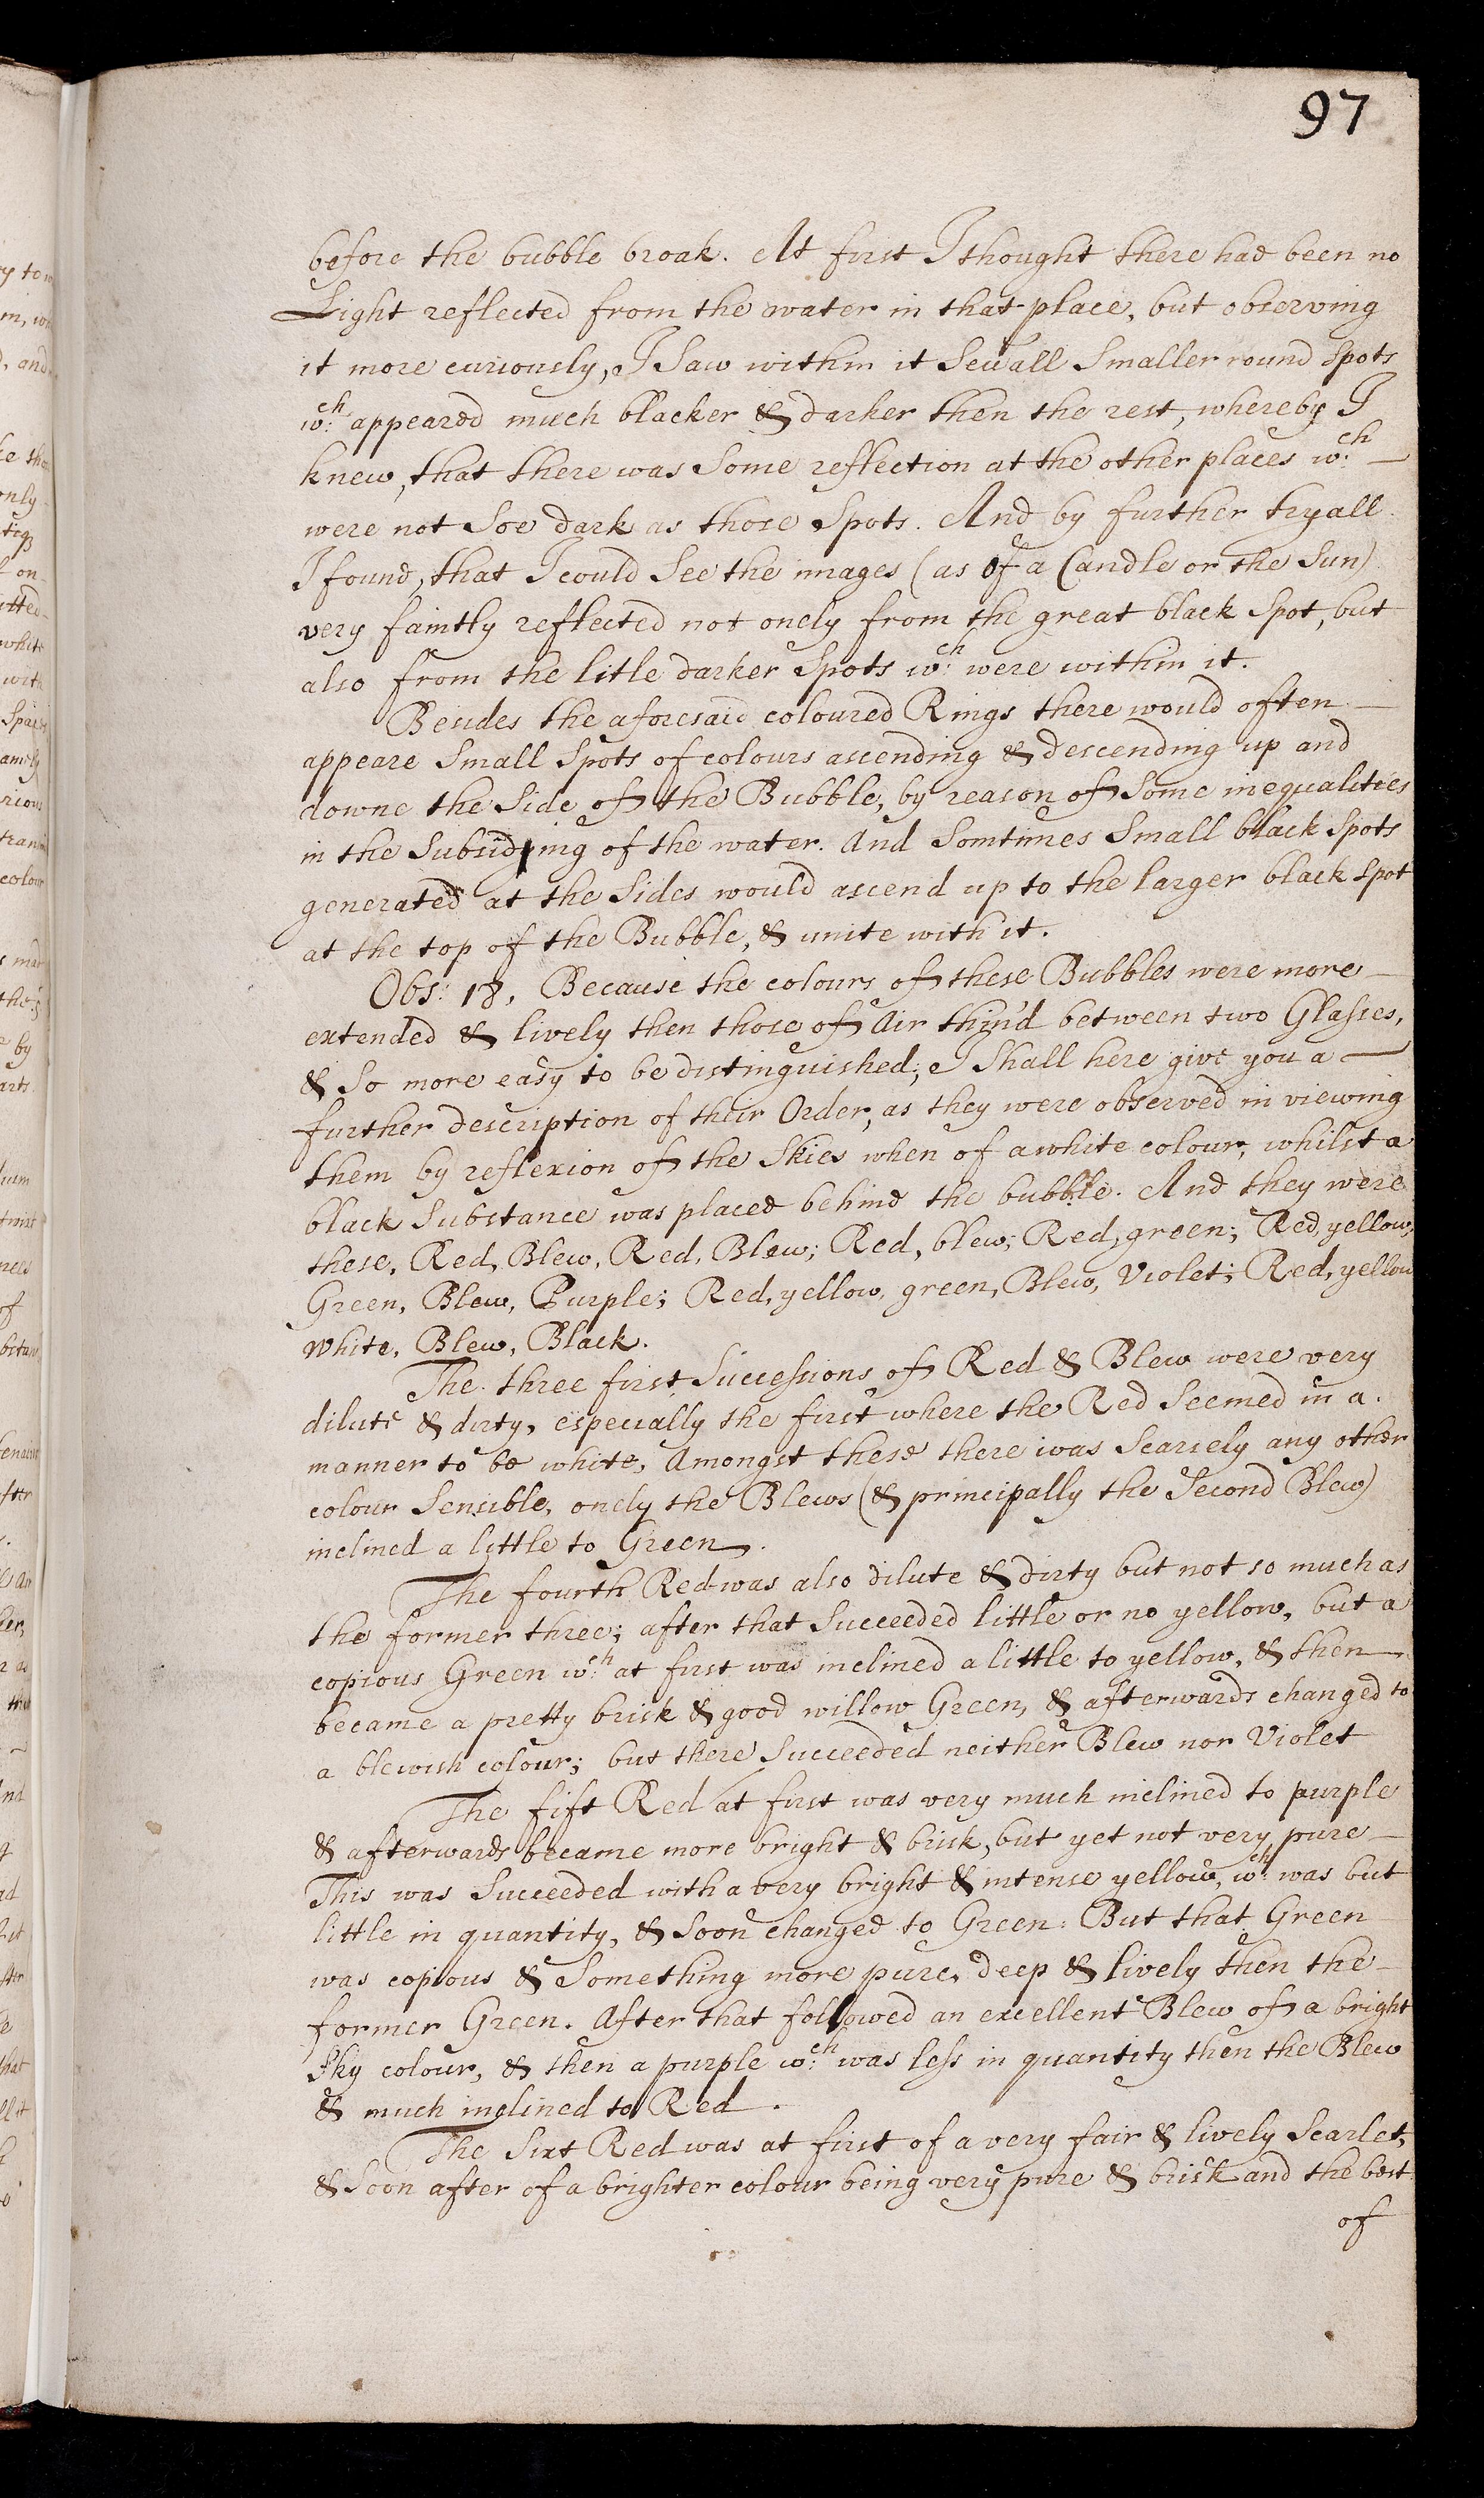 97
before the bubble broak. At first I thought there had been no
Light reflected from the water in that place, but observing
it more curiously, I Saw within it Sevall Smaller round Spots
wch: appeared much blacker & darker then the rest, whereby I
knew, that there was Some reflection at the other places wch: —
were not Soe dark as those Spots. And by further tryall
I found, that I could See the images (as of a Candle or the Sun)
very faintly reflected not onely from the great black Spot, but
also from the litle darker Spots wch: were within it.
Besides the aforesaid coloured Rings there would often —
appeare Small Spots of colours ascending & descending up and
downe the Side of the Bubble, by reason of Some inequalities
in the Subsiding of the water. And Somtimes Small black Spots
generated at the Sides would ascend up to the larger black Spot
at the top of the Bubble, & unite with it.
Obs: 18. Because the colours of these Bubbles were more —
extended & lively then those of Air thin'd between two Glasses,
& So more easy to be distinguished; I Shall here give you a —
further description of their Order, as they were observed in viewing
them by reflexion of the Skies when of a white colour, whilst a
black Substance was placed behind the bubble. And they were
these, Red, Blew, Red, Blew; Red, blew; Red, green; Red, yellow,
Green, Blew, Purple; Red, yellow, green, Blew, Violet; Red, yellow
white, Blew, Black.
The three first Successions of Red & Blew were very
dilute & dirty, especially the first where the Red Seemed in a
manner to be white, Amongst these there was Scarsely any other
colour Sensible, onely the Blews (& principally the Second Blew)
inclined a little to Green.
The fourth Red was also dilute & dirty but not so much as
the former three; after that Succeeded little or no yellow, but a
copious Green wch: at first was inclined a little to yellow, & then
became a pretty brisk & good willow Green, & afterwards changed to
a blewish colour; but there Succeeded neither Blew nor Violet
The fift Red at first was very much inclined to purple
& afterwards became more bright & brisk, but yet not very pure —
This was Succeeded with a very bright & intense yellow, wch: was but
little in quantity, & Soon changed to Green: But that Green
was copious & Something more pure, deep & lively then the —
former Green. After that followed an excellent Blew of a bright
Sky colour, & then a purple wch: was less in quantity then the Blew
& much inclined to Red.
The Sixt Red was at first of a very fair & lively Scarlet,
& Soon after of a brighter colour being very pure & brisk and the best
of